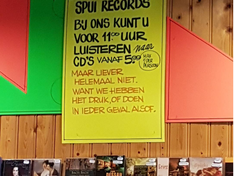 SPUI RECORDS
BIJ ONS KUNT U
VOOR 11⁰⁰ UUR
LUISTEREN naar
CD'S VANAF 5,00
MAAR LIEVER
HELEMAAL NIET.
WANT WE HEBBEN
HET DRUK, OF DOEN
IN IEDER GEVAL ALSOF.